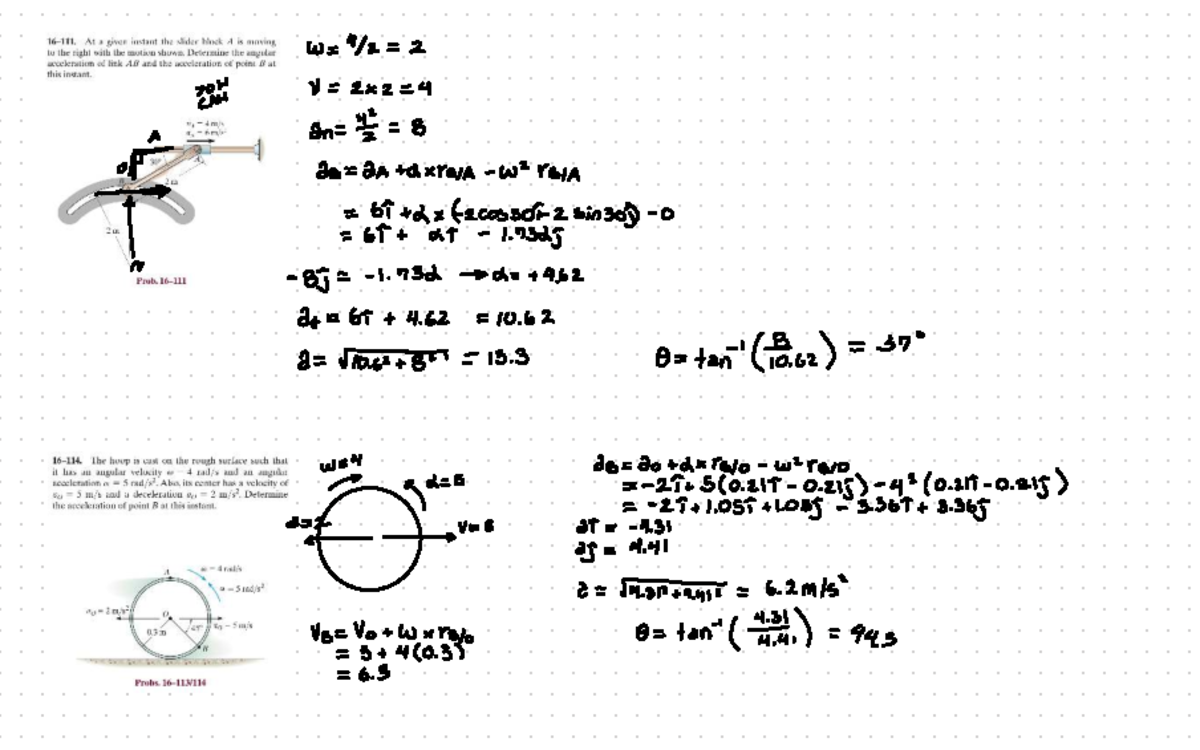 16–111. At a given instant the slider block A is moving
to the right with the motion shown. Determine the angular
acceleration of link AB and the acceleration of point B at
this instant.
A
30°
2 m
2 m
Prob. 16–111
ω = 4/2 = 2
V = 2 × 2 = 4
an = 4²/2 = 8
aB = aA + α × rB/A − ω² rB/A
= 6î + α × (−2cos30î − 2 sin30ĵ) − 0
= 6î + αî − 1.73αĵ
−8ĵ = −1.73α → α = +4.62
at = 6î + 4.62 = 10.62
a = √10.6² + 8² = 13.3
θ = tan⁻¹ (8/10.62) = 37°
16–114. The hoop is cast on the rough surface such that
it has an angular velocity ω = 4 rad/s and an angular
acceleration α = 5 rad/s². Also, its center has a velocity of
vO = 5 m/s and a deceleration aO = 2 m/s². Determine
the acceleration of point B at this instant.
A
ω = 4 rad/s
α = 5 rad/s²
aO = 2 m/s²
O
vO = 5 m/s
0.3 m
45°
B
Probs. 16–113/114
ω=4
α=5
a=2
VB = VO + ω × rB/O
= 5 + 4(0.3)
aB = aO + α × rB/O − ω² rB/O
= −2î + 5(0.21î − 0.21ĵ) − 4²(0.21î − 0.21ĵ)
= −2î + 1.05î + 1.05ĵ − 3.36î + 3.36ĵ
aî = −4.31
aĵ = 4.41
= 6.2 m/s²
θ = tan⁻¹ (4.31/4.41)